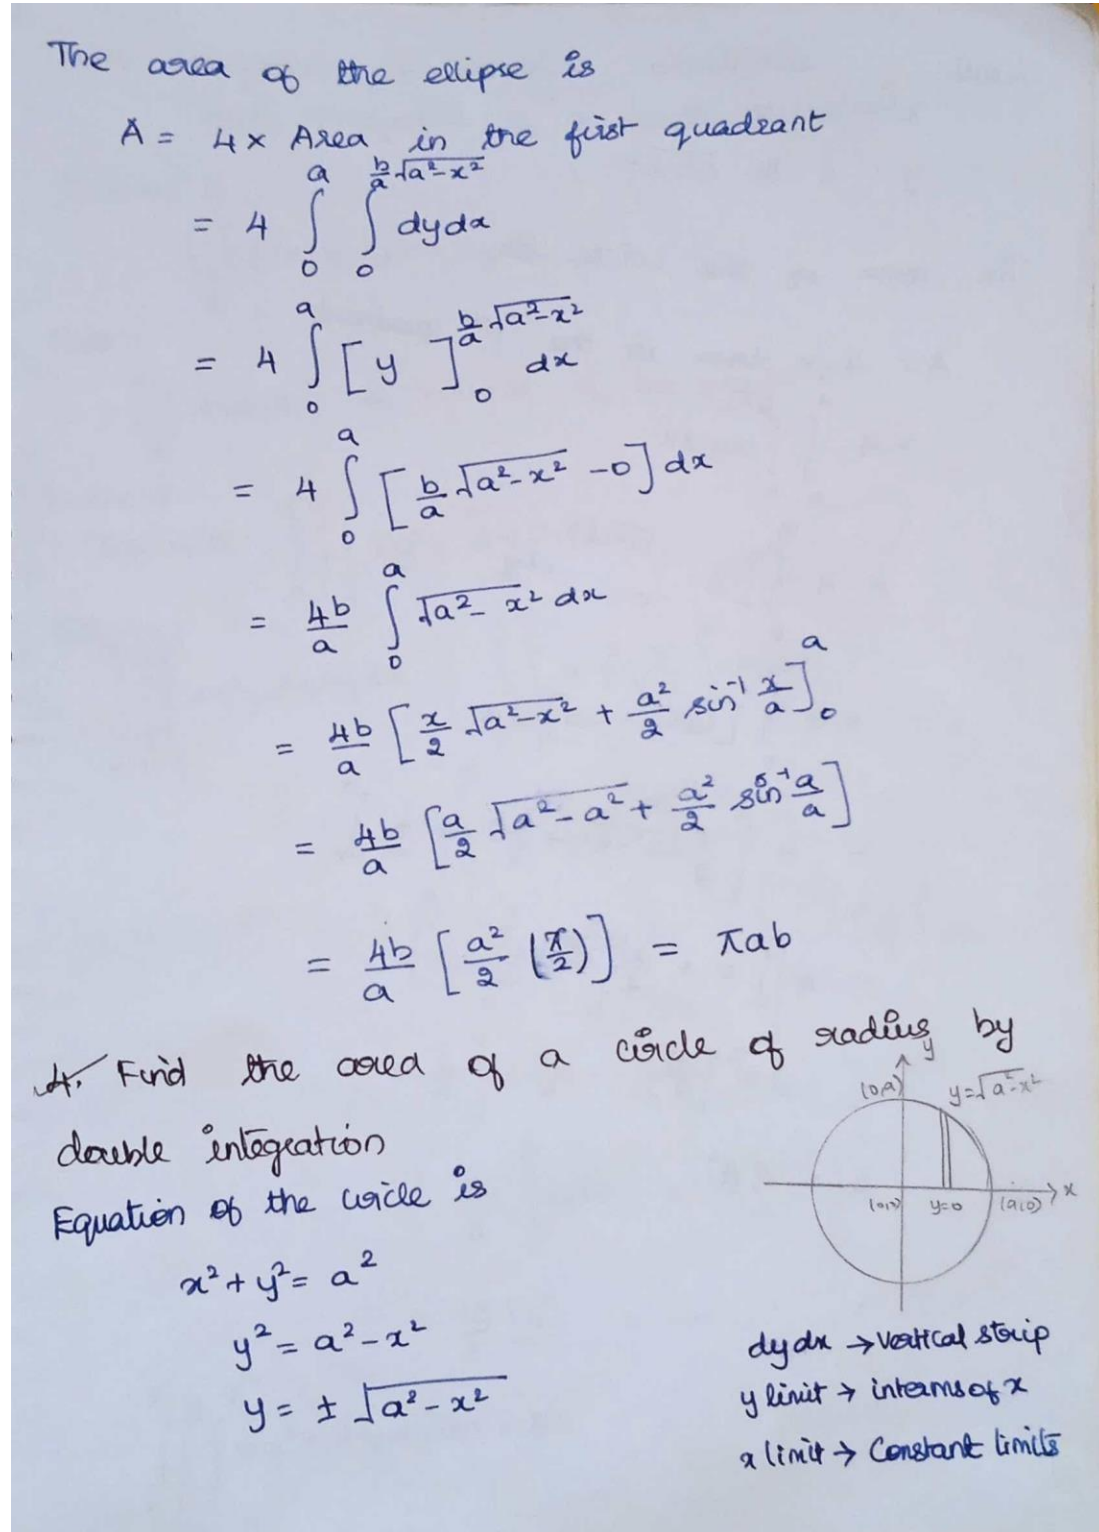 The area of the ellipse is
A = 4 × Area in the first quadrant
= 4 ∫₀^a ∫₀^(b/a √(a²-x²)) dy dx
= 4 ∫₀^a [y]₀^(b/a √(a²-x²)) dx
= 4 ∫₀^a [b/a √(a²-x²) - 0] dx
= 4b/a ∫₀^a √(a²-x²) dx
= 4b/a [x/2 √(a²-x²) + a²/2 sin⁻¹ x/a]₀^a
= 4b/a [a/2 √(a²-a²) + a²/2 sin⁻¹ a/a]
= 4b/a [a²/2 (π/2)] = πab
4. Find the area of a circle of radius by
double integration
Equation of the circle is
x² + y² = a²
y² = a² - x²
y = ± √(a² - x²)
y
(0,a) y=√(a²-x²)
x
(0,0) y=0 (a,0)
dy dx → vertical strip
y limit → interms of x
x limit → Constant limits